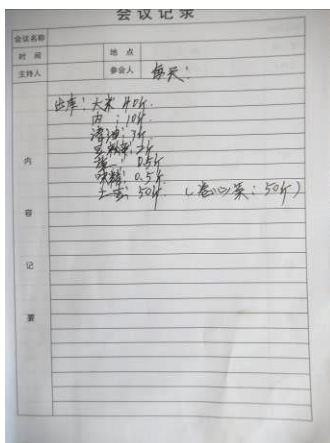 会议记录
会议名称
时间 地点
主持人 参会人 每天:
出库:大米 40斤
肉:10斤
清油:3斤
豆瓣酱:2斤
盐:0.5斤
味精:0.5斤
土豆:50斤 (卷心菜:50斤)
内容记要